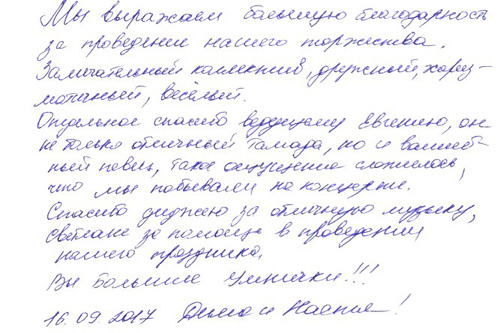 Мы выражаем большую благодарность
за проведение нашего торжества.
Замечательный коллектив, дружный, хариз-
матичный, весёлый.
Отдельное спасибо ведущему Евгению, он
не только отличный тамада, но и велико-
певец, такое ощущение сложилось,
что мы побывали на концерте.
Спасибо диджею за отличную музыку,
Светлане за помощь в проведении
нашего праздника.
Вы большие умнички!!!
16.09.2017 Дима и Настя!